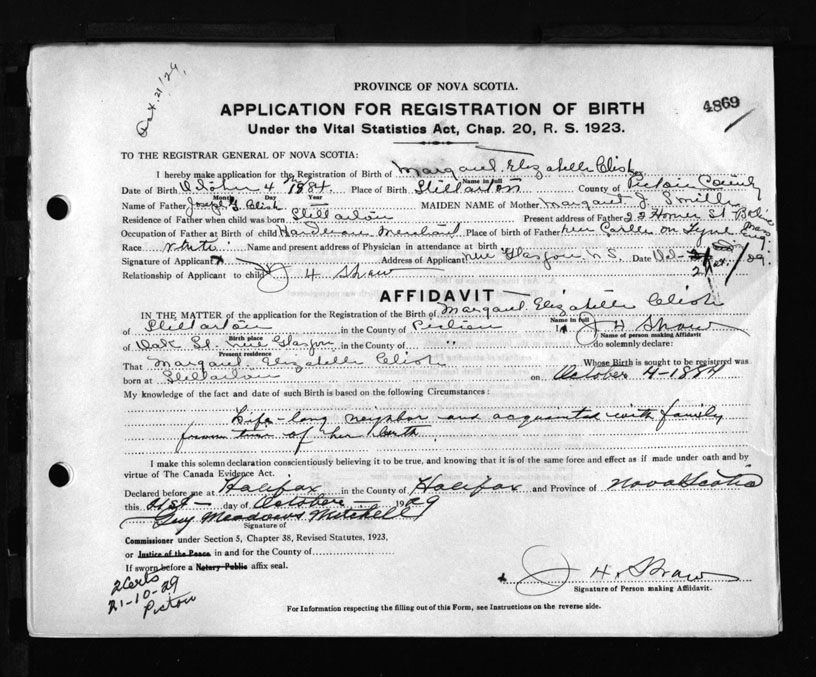 PROVINCE OF NOVA SCOTIA.
4869
APPLICATION FOR REGISTRATION OF BIRTH
Under the Vital Statistics Act, Chap. 20, R. S. 1923.
Oct. 21/29
TO THE REGISTRAR GENERAL OF NOVA SCOTIA:
I hereby make application for the Registration of Birth of Margaret Elizabeth Clish
Name in full
Date of Birth October 4 1884 Place of Birth Stellarton County of Pictou County
Month Day Year
Name of Father Joseph G. Clish MAIDEN NAME of Mother Margaret J. Smith
Residence of Father when child was born Stellarton Present address of Father 22 Homer St.
Occupation of Father at Birth of child Hardware Merchant Place of birth of Father on Tyne Eng.
Race White Name and present address of Physician in attendance at birth
Signature of Applicant Address of Applicant New Glasgow N.S. Date Oct 21/29.
Relationship of Applicant to child J H Shaw
AFFIDAVIT
IN THE MATTER of the application for the Registration of the Birth of Margaret Elizabeth Clish
Name in full
of Stellarton in the County of Pictou I, J H Shaw
Birth place Name of person making Affidavit
of Oak St. New Glasgow in the County of " do solemnly declare:
Present residence
That Margaret Elizabeth Clish Whose Birth is sought to be registered was
born at Stellarton on October 4-1884
My knowledge of the fact and date of such Birth is based on the following Circumstances:
Life-long neighbor and acquainted with family
from time of her birth.
I make this solemn declaration conscientiously believing it to be true, and knowing that it is of the same force and effect as if made under oath and by
virtue of The Canada Evidence Act.
Declared before me at Halifax in the County of Halifax and Province of Nova Scotia
this 21st day of October 1929
Guy Meadows Mitchell
Signature of
Commissioner under Section 5, Chapter 38, Revised Statutes, 1923,
or Justice of the Peace in and for the County of
If sworn before a Notary Public affix seal.
2 Certs
21-10-29
Pictou
J H. Shaw
Signature of Person making Affidavit.
For Information respecting the filling out of this Form, see Instructions on the reverse side.